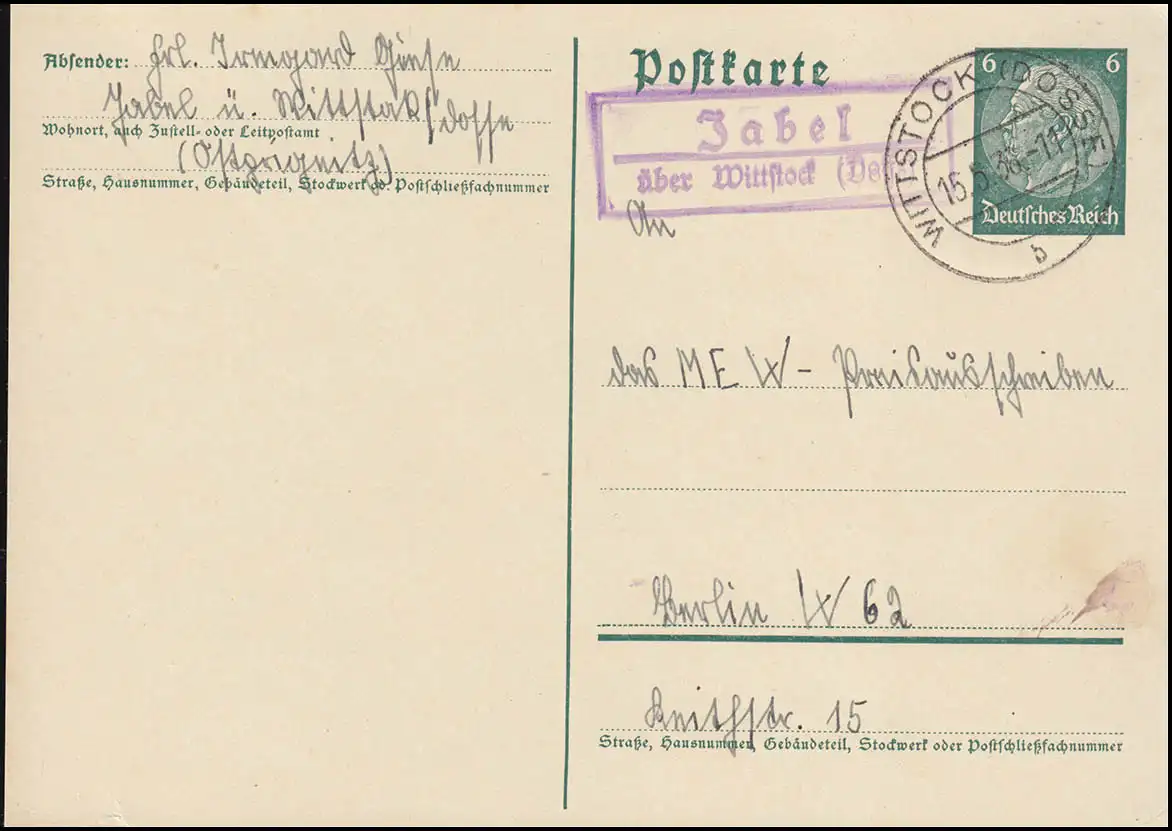 Absender: Frl. Irmgard Giese
Jabel ü. Wittstock/Dosse
Wohnort, auch Zustell- oder Leitpostamt
(Ostprignitz)
Straße, Hausnummer, Gebäudeteil, Stockwerk od. Postschließfachnummer
Postkarte
Jabel
über Wittstock
WITTSTOCK (DOSSE
15.5.36.-11
b
6 6
Deutsches Reich
An
das MEW-Preisausschreiben
Berlin W 62
Keithstr. 15
Straße, Hausnummer, Gebäudeteil, Stockwerk oder Postschließfachnummer